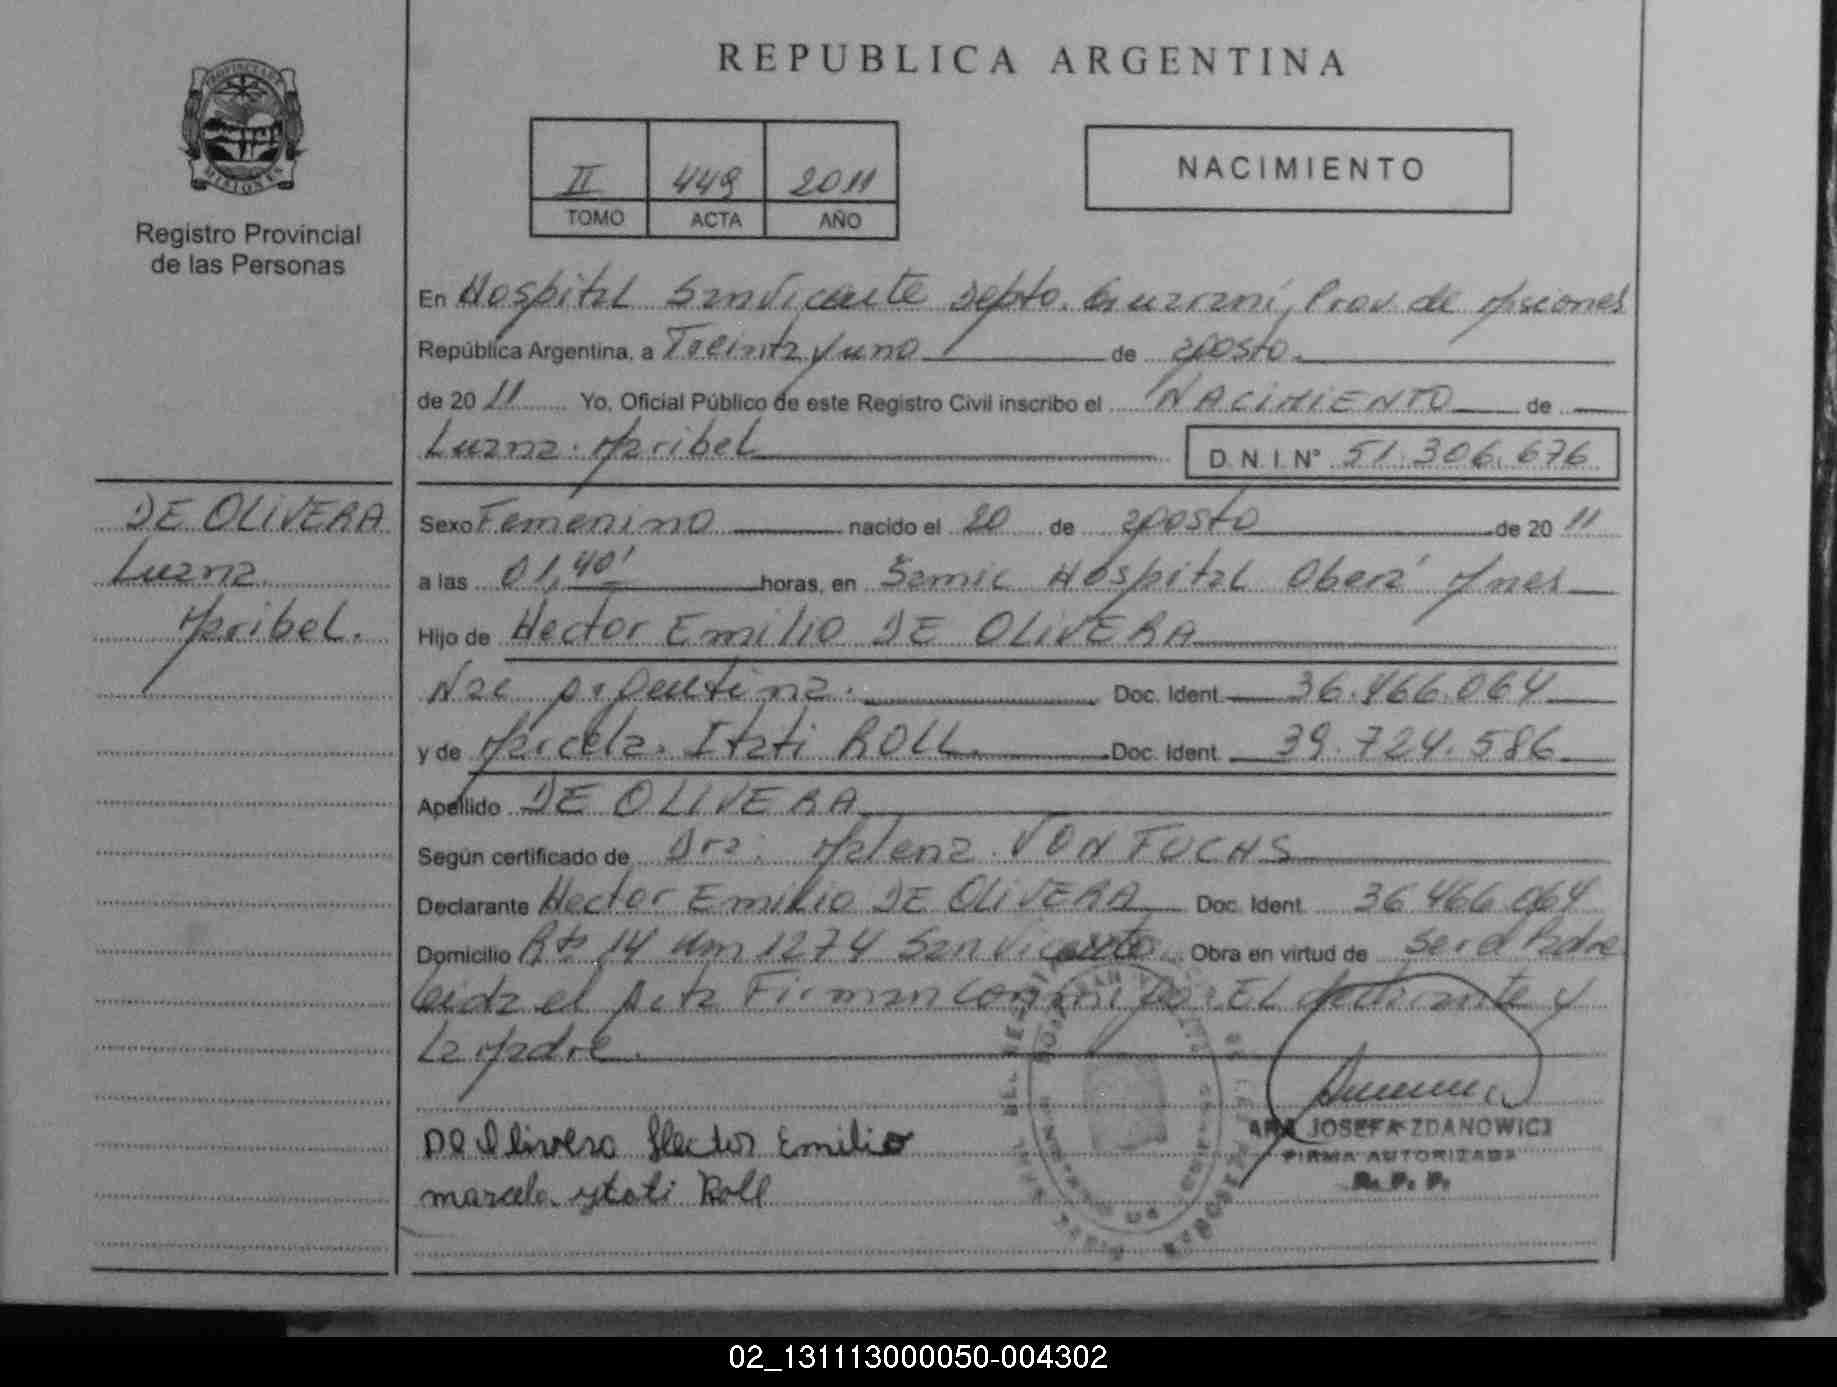 REPUBLICA ARGENTINA
PROVINCIA DE MISIONES
Registro Provincial
de las Personas
II 449 2011
TOMO ACTA AÑO
NACIMIENTO
En Hospital San Vicente Depto. Guaraní, Prov. de Misiones
República Argentina, a Treinta y uno de agosto.
de 20 11 Yo, Oficial Público de este Registro Civil inscribo el NACIMIENTO de
Luana Maribel D.N.I. N° 51.306.676
DE OLIVERA
Luana
Maribel.
Sexo Femenino nacido el 20 de agosto de 20 11
a las 01,40' horas, en Samic Hospital Oberá Mnes
Hijo de Hector Emilio DE OLIVERA
Nac argentina. Doc. Ident. 36.466.064
y de Marcela Itati ROLL. Doc. Ident. 39.724.586
Apellido DE OLIVERA
Según certificado de Dra. Malena VON FUCHS
Declarante Hector Emilio DE OLIVERA Doc. Ident. 36.466.064
Domicilio Rta 14 Km 1274 San Vicente Obra en virtud de Ser el Padre
Leida el Acta Firman conmigo: EL declarante y
La Madre.
De Olivera Hector Emilio
marcela ytati Roll
ANA JOSEFA ZDANOWICZ
FIRMA AUTORIZADA
R. P. P.
02_131113000050-004302